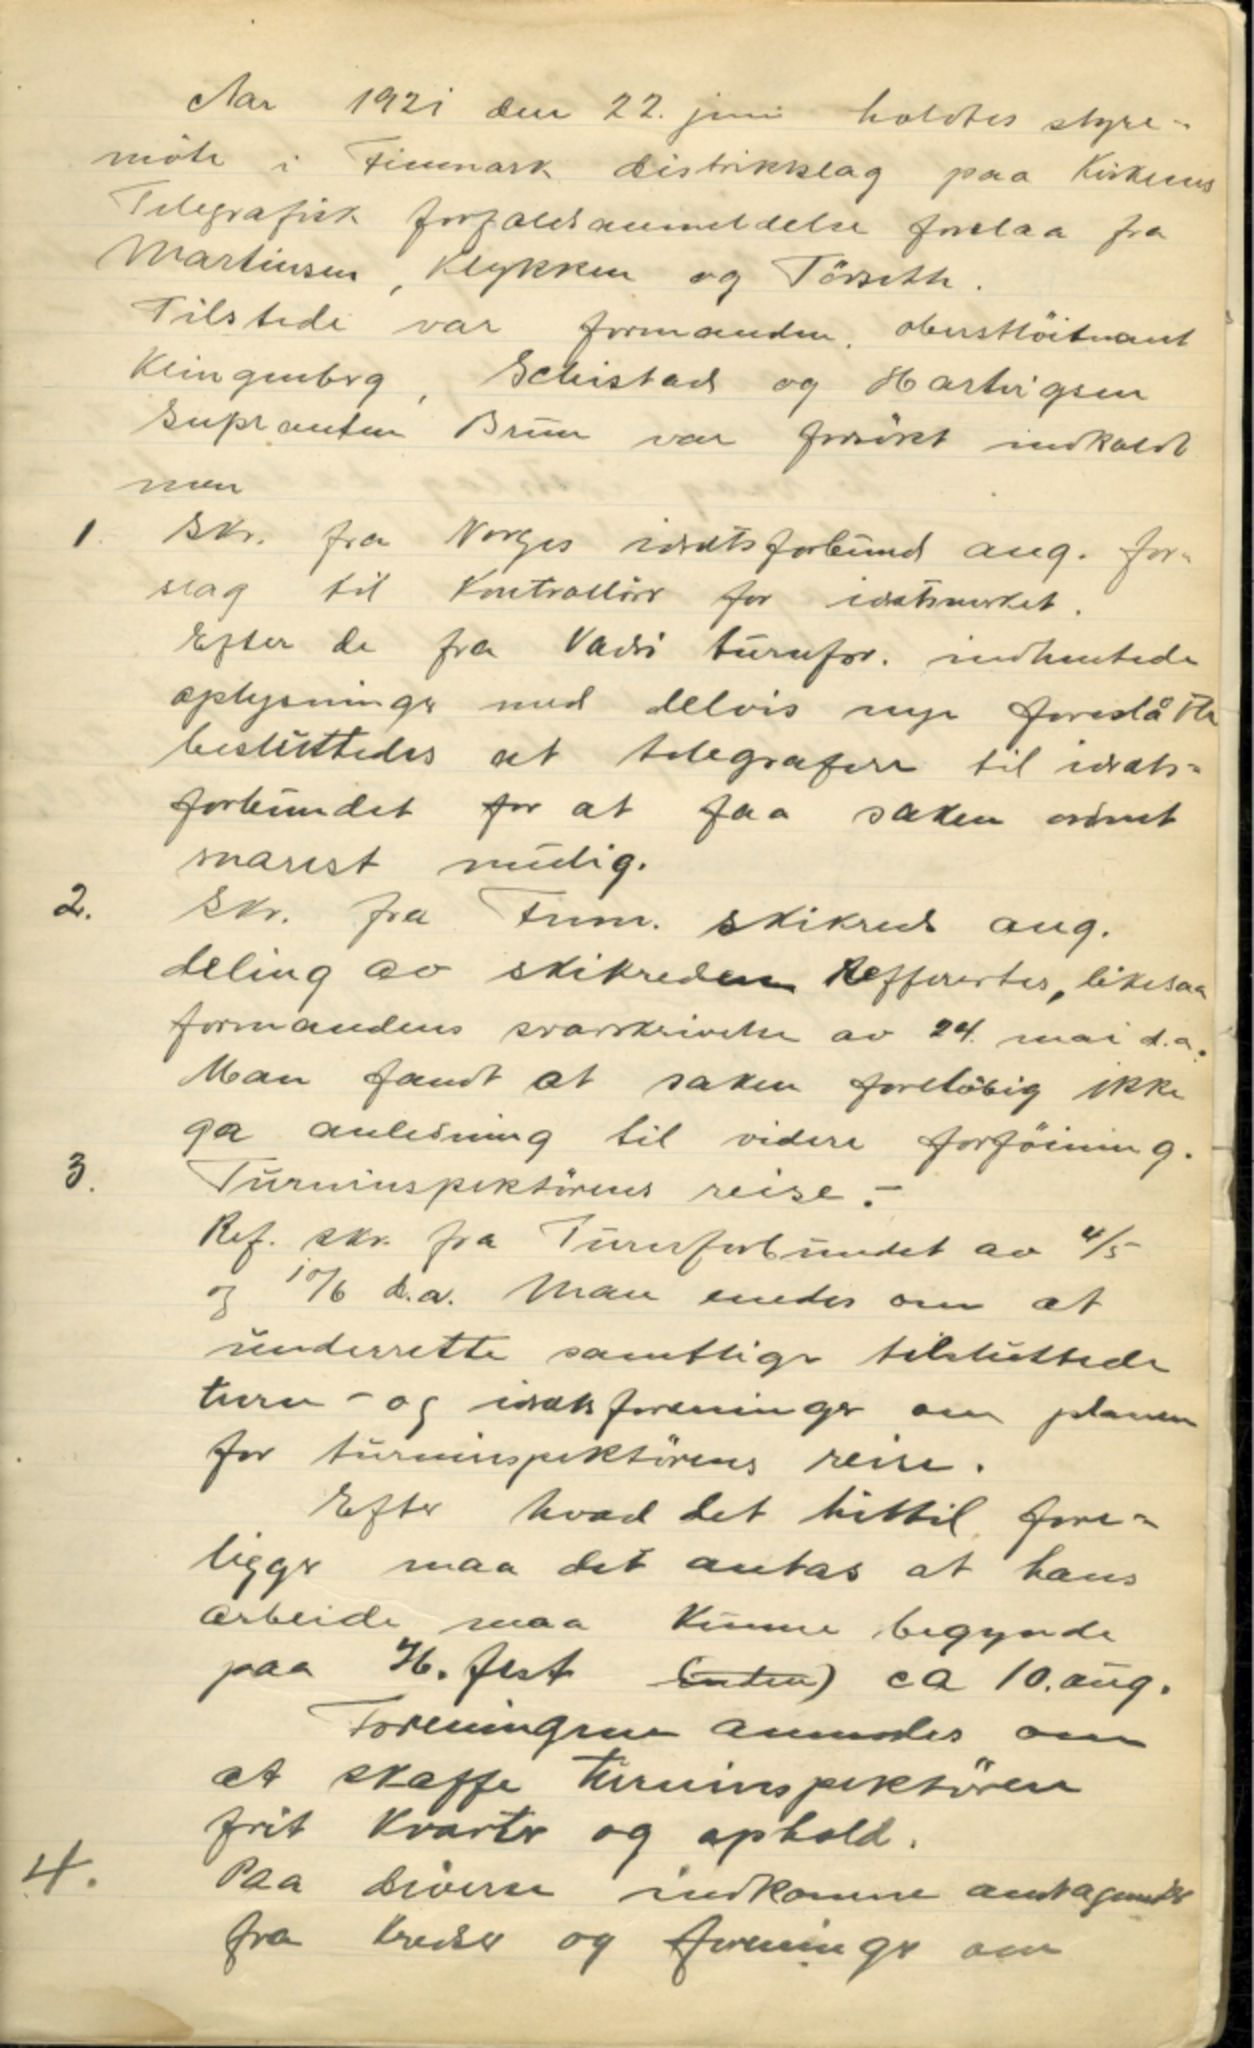 Aar 1921 den 22. juni holdtes styre-
möte i Finmark distriktslag paa Kirkenes
Telegrafisk forfaldsanmeldelse forelaa fra
Martinsen, Klykken og Törseth.
Tilstede var formanden, oberstlöitnant
Klingenberg, Schistad og Hartvigsen
Suplanten Bruun var forsökt indkaldt
men
1. Skr. fra Norges idrætsforbund ang. for-
slag til Kontrollör for idrætsmerket.
Efter de fra Vadsö turnfor. indhentede
oplysninger med delvis nye foreslåtte
besluttedes at telegrafere til idræts-
forbundet for at faa saken ordnet
snarest mulig.
2. Skr. fra Finm. skikreds ang.
deling av skikredsen refferertes, likesaa
formandens svarskrivelse av 24. mai d.a.
Man fandt at saken foreløbig ikke
ga anledning til videre forföining.
3. Turninspektörens reise.-
Ref. skr. fra Turnforbundet av 4/5
og 10/6 d.a. Man enedes om at
underrette samtlige tilsluttede
turn- og idrætsforeninger om planen
for turninspektörens reise.
Efter hvad det hittil fore-
ligger maa det antas at hans
arbeide maa kunne begynde
paa H.fest ca 10. aug.
Foreningene anmodes om
at skaffe turninspektören
frit kvarter og ophold.
4. Paa diverse indkomne andragender
fra kredser og foreninger om